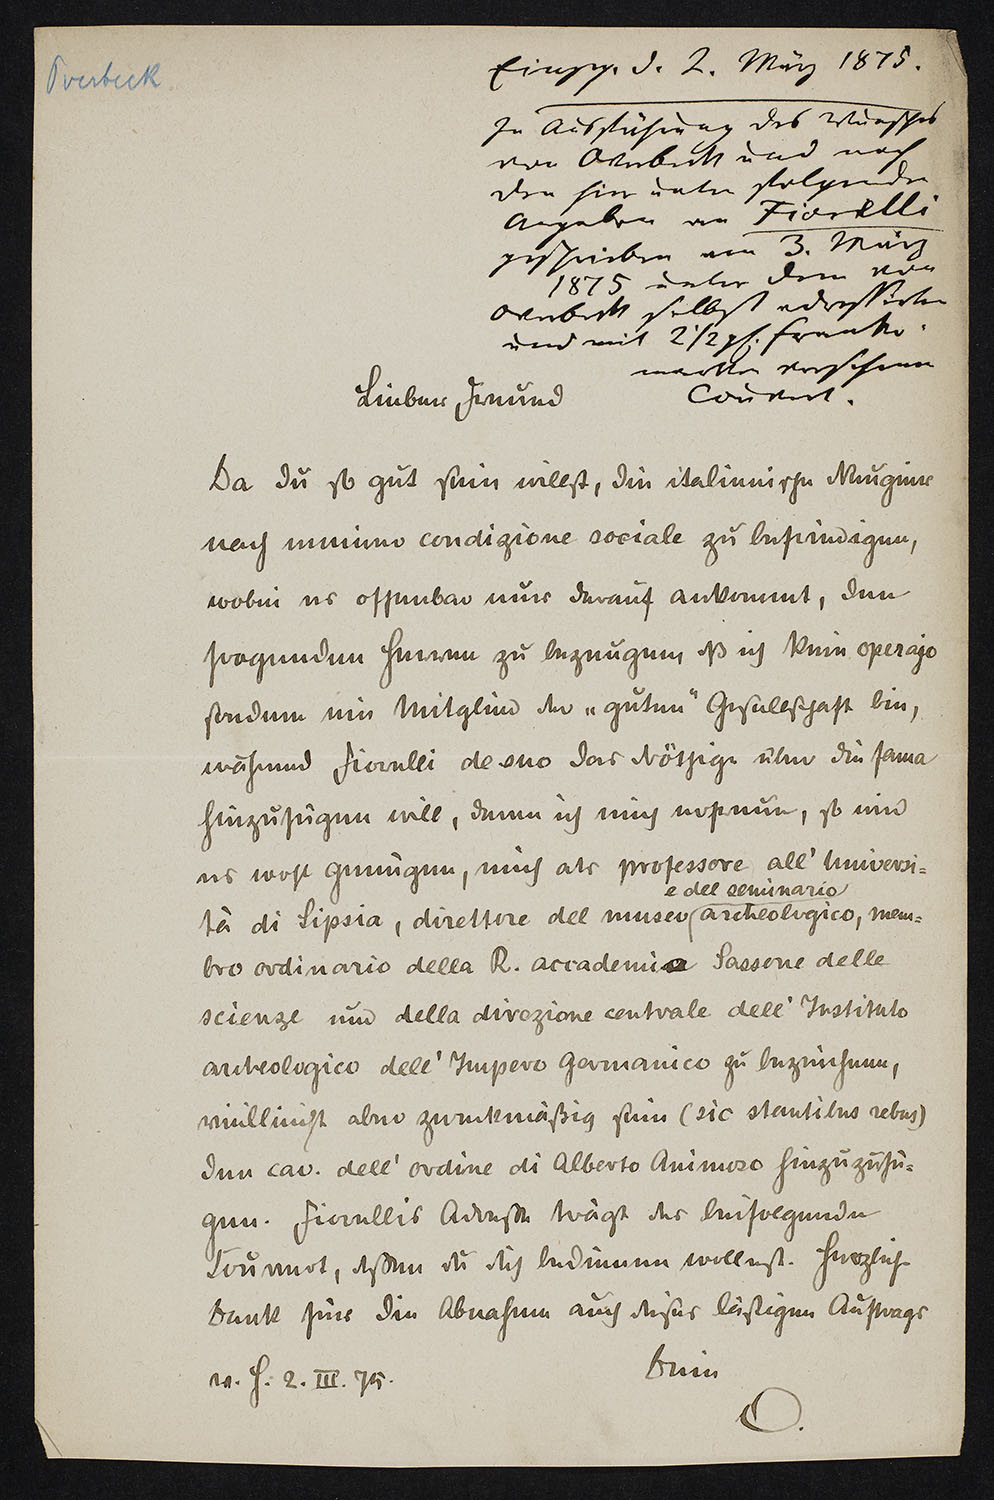 Overbeck
Empf. d. 2. März 1875.
In Ausführung des Wunsches
von Overbeck und nach
den hier unten folgenden
Angaben an Fiorelli
geschrieben am 3. März
1875 unter dem von
Overbeck selbst adressirten
und mit 2 1/2 gl. Franko-
marken versehenen
Couvert.
Lieber Freund
Da du so gut sein willst, die italienische Neugier
nach meiner condizione sociale zu befriedigen,
wobei es offenbar nur darauf ankommt, den
fragenden Herren zu bezeugen, dß ich kein operajo
sondern ein Mitglied der „guten" Gesellschaft bin,
während Fiorelli de suo das Nöthige über die fama
hinzufügen will, deren ich mich erfreue, so wird
es wohl genügen, mich als professore all' Universi=
tà di Lipsia, direttore del museo archeologico, mem=
e del seminario
bro ordinario della R. accademia Sassone delle
scienze und della direzione centrale dell' Instituto
archeologico dell' Impero Germanico zu bezeichnen,
vielleicht aber zweckmäßig sein (sic stantibus rebus)
den cav. dell' ordine di Alberto Animoso hinzuzufü=
gen. Fiorellis Adresse trägt das beifolgende
Couvert, dessen du dich bedienen wollest. Herzlich
Dank für die Abnahme auch dieses lästigen Auftrags
v. H. 2. III. 75.
Dein
O.